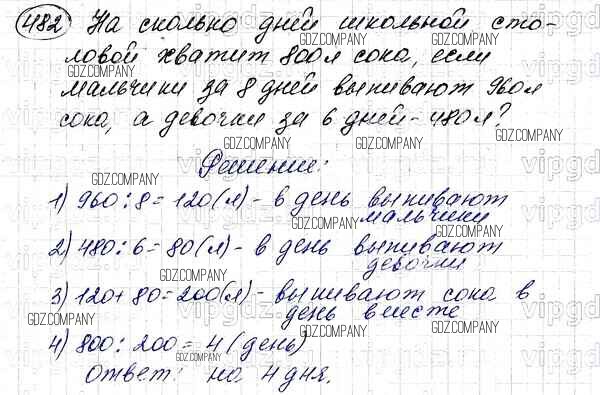 482 На сколько дней школьной сто-
ловой хватит 800л сока, если
мальчики за 8 дней выпивают 960л
сока, а девочки за 6 дней - 480л?
GDZ.COMPANY GDZ.COMPANY GDZ.COMPANY
Решение:
GDZ.COMPANY GDZ.COMPANY
1) 960:8=120(л) - в день выпивают
мальчики
GDZ.COMPANY
2) 480:6=80(л) - в день выпивают
девочки
GDZ.COMPANY GDZ.COMPANY
3) 120+80=200(л) - выпивают сока в
день вместе
GDZ.COMPANY GDZ.COMPANY GDZ.COMPANY
4) 800:200=4 (день)
GDZ.COMPANY
Ответ: на 4 дня.